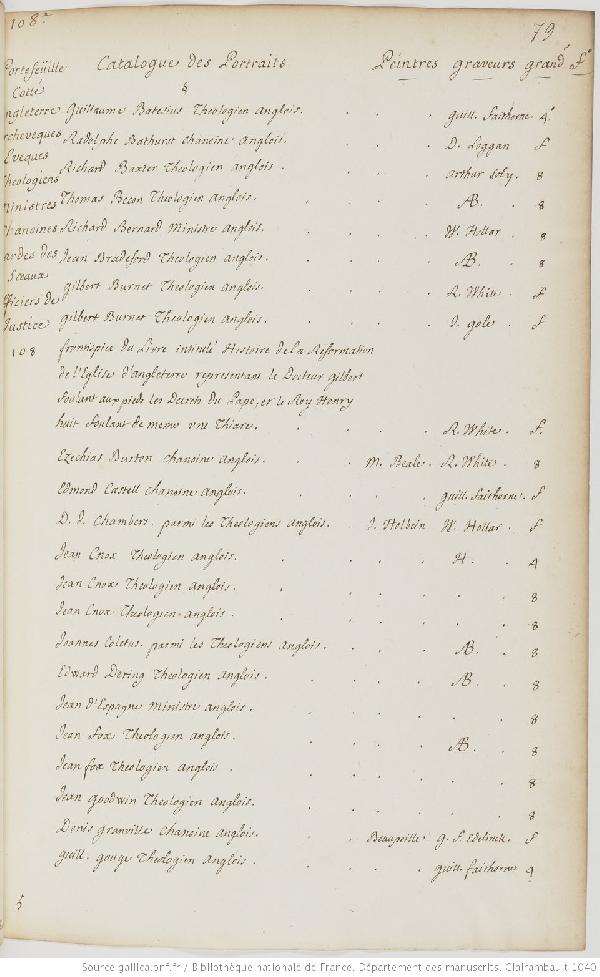 108.e
79
Portefeüille Catalogue des Portraits Peintres graveurs grand.r f.o
Cotte §
ngleterre Guillaume Batesius Theologien Anglois. guill. Faithorne 4.o
rcheveques Radolphe Bathurst chanoine Anglois. D. Loggan f
Eveques Richard Baxter Theologien Anglois. Arthur soly. 8
heologiens Thomas Becon Theologien Anglois. AB. 8
inistres Richard Bernard Ministre Anglois. W. Hollar. 8
hanoines Jean Bradeford Theologien Anglois. AB. 8
ardes des gilbert Burnet Theologien Anglois. R. White. f
Sceaux gilbert Burnet Theologien Anglois. J. gole. f
fficiers de
Justice
108 frontispice du Livre intitulé Histoire de la Reformation
de l'Eglise d'angleterre representant le Docteur gilbert
foulant aux pieds les Decrets du Pape, et le Roy Henry
huit foulant de meme une Thiare. R. White. f.
Ezechias Burton chanoine Anglois. M. Beale. R. White. 8
Edmond Castell chanoine Anglois. guill. faithorne. f
D. J. Chambers. parmi les Theologiens Anglois. J. Holbein W. Hollar. f
Jean Cnox Theologien Anglois. H. 4
Jean Cnox Theologien Anglois. 8
Jean Cnox Theologien Anglois. 8
Joannes Coletus. parmi les Theologiens Anglois. AB. 8
Edward Dering Theologien Anglois. AB. 8
Jean d'Espagne Ministre Anglois. 8
Jean Fox Theologien Anglois. AB. 8
Jean fox Theologien Anglois. 8
Jean goodwin Theologien Anglois. 8
Denis granville Chanoine Anglois. Beaupoille g. f. Edelinck. f
guill. gouge Theologien Anglois. guill. faithorne 4
Source gallica.bnf.fr / Bibliothèque nationale de France. Département des manuscrits. Clairambault 1040